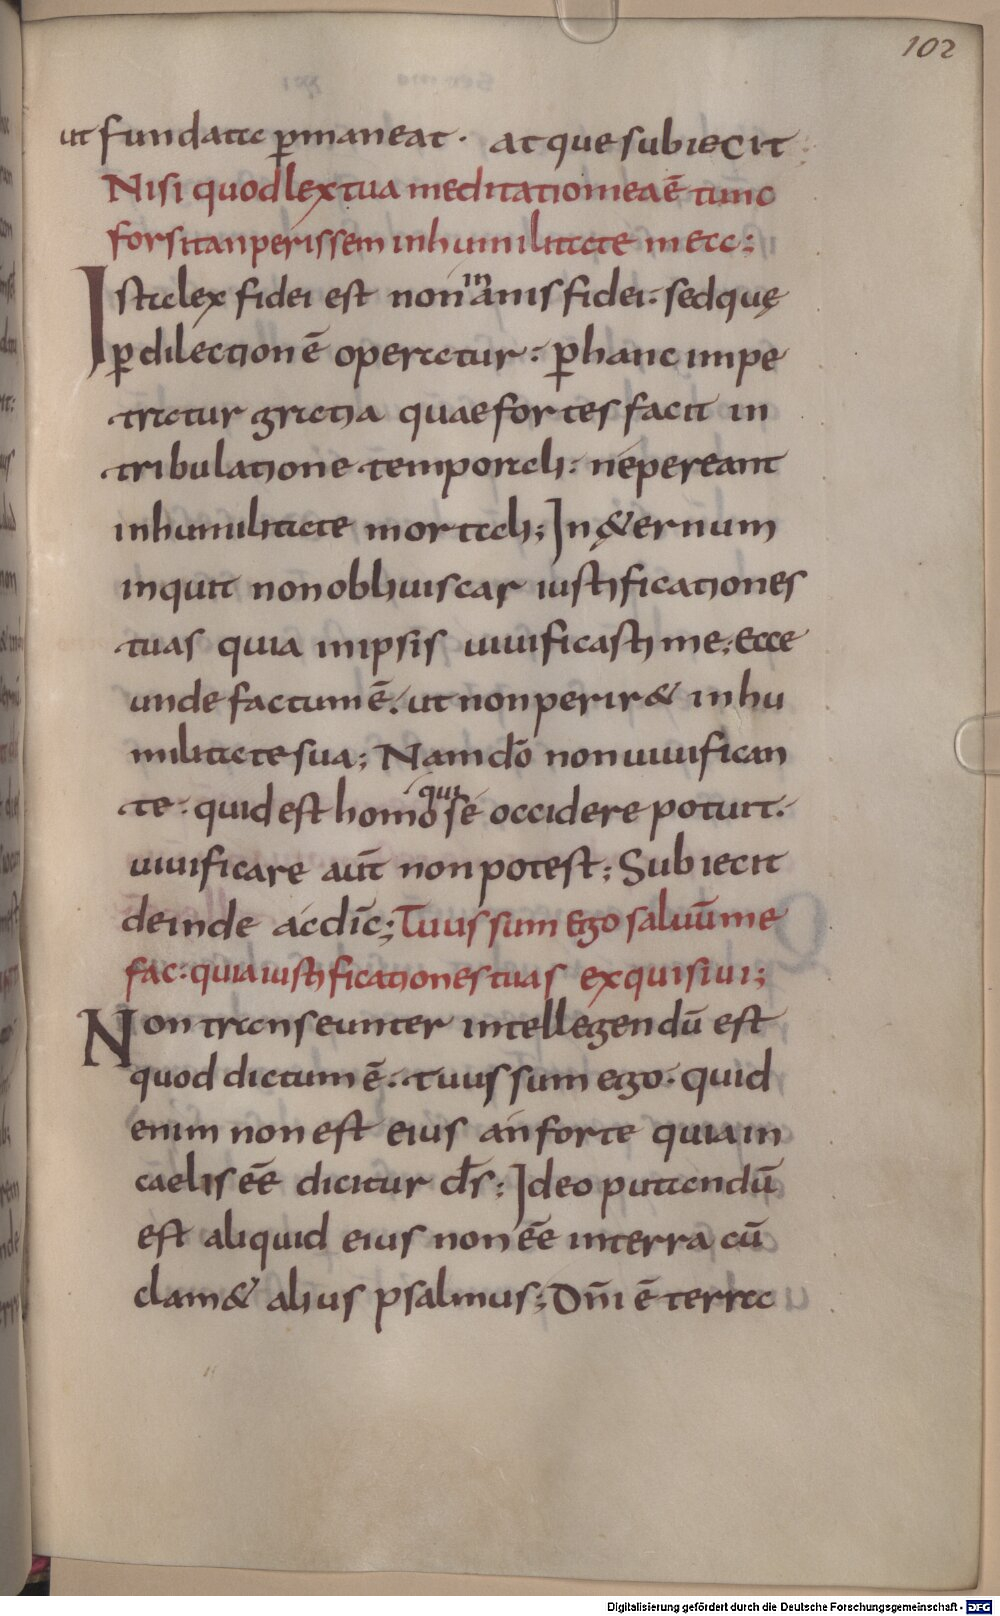 102
ut fundata p̱maneat · atque subiecit
Nisi quod lex tua meditatio mea ē tunc
forsitan perissem in humilitate mea:
Ista lex fidei est non in anis fidei · sed quę
ꝑ dilectionē operatur : ꝑ hanc impe
tratur gratia quae fortes facit in
tribulatione temporali : ne pereant
in humilitate mortali; In &ernum
inquit non obliuiscar iustificationes
tuas quia in ipsis uiuificasti me; Ecce
unde factum ē · ut non perir& in hu
militate sua; Nam dō non uiuifican
te · quid est homo qui se occidere potuit ·
uiuificare aut̄ non potest; Subiecit
deinde ac dīc; Tuus sum ego saluū me
fac : quia iustificationes tuas exquisiui;
Non transeunter intellegendū est
quod dictum ē · tuus sum ego · quid
enim non est eius an forte quia in
caelis eē dicitur d̄s; Ideo putandū
est aliquid eius non eē in terra cū
clam& alius psalmus; Dn̄i ē terra
Digitalisierung gefördert durch die Deutsche Forschungsgemeinschaft - DFG